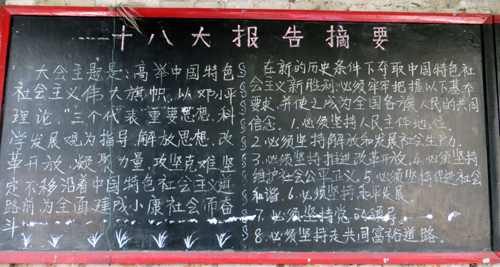 十八大报告摘要
大会主题是：高举中国特色
社会主义伟大旗帜，以邓小平
理论“三个代表”重要思想，科
学发展观为指导，解放思想，改
革开放，凝聚力量，攻坚克难，坚
定不移沿着中国特色社会主义道
路前，为全面建成小康社会而奋
斗
在新的历史条件下夺取中国特色社
会主义新胜利，必须牢牢把握以下基本
要求，并使之成为全国各族人民的共同
信念。1.必须坚持人民主体地位。
2.必须坚持解放和发展社会生产力。
3.必须坚持推进改革开放。4.必须坚持
维护社会公平正义。5.必须坚持促进社会
和谐。6.必须坚持和平发展
7.必须坚持党的领导。
8.必须坚持走共同富裕道路。